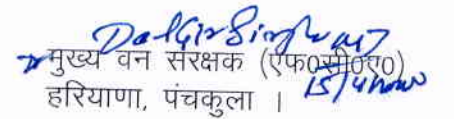 Dalbir Singh
मुख्य वन संरक्षक (एफ०सी०ए०)
हरियाणा, पंचकुला ।